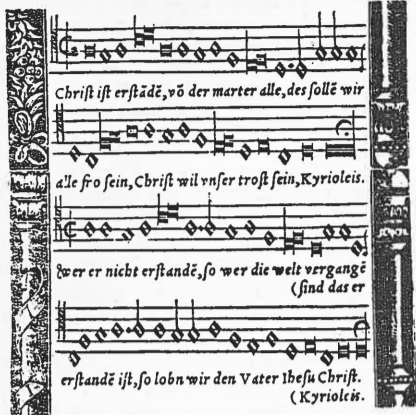 Chriſt iſt erſtādē, vō der marter alle, des ſollē wir
alle fro ſein, Chriſt wil vnſer troſt ſein, Kyrioleis.
wer er nicht erſtandē, ſo wer die welt vergangē
(ſind das er
erſtandē iſt, ſo lobn wir den Vater Iheſu Chriſt.
(Kyrioleis.